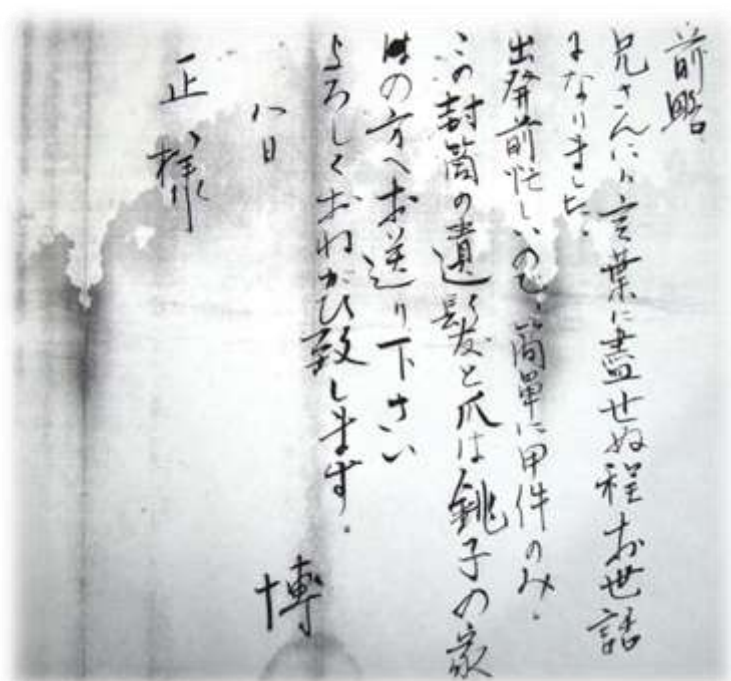 前略
兄さんには言葉に盡せぬ程お世話
になりました。
出発前忙しいので、簡単に用件のみ。
この封筒の遺髪と爪は銚子の家
の方へお送り下さい
よろしくおねがひ致します。
八日
博
正様